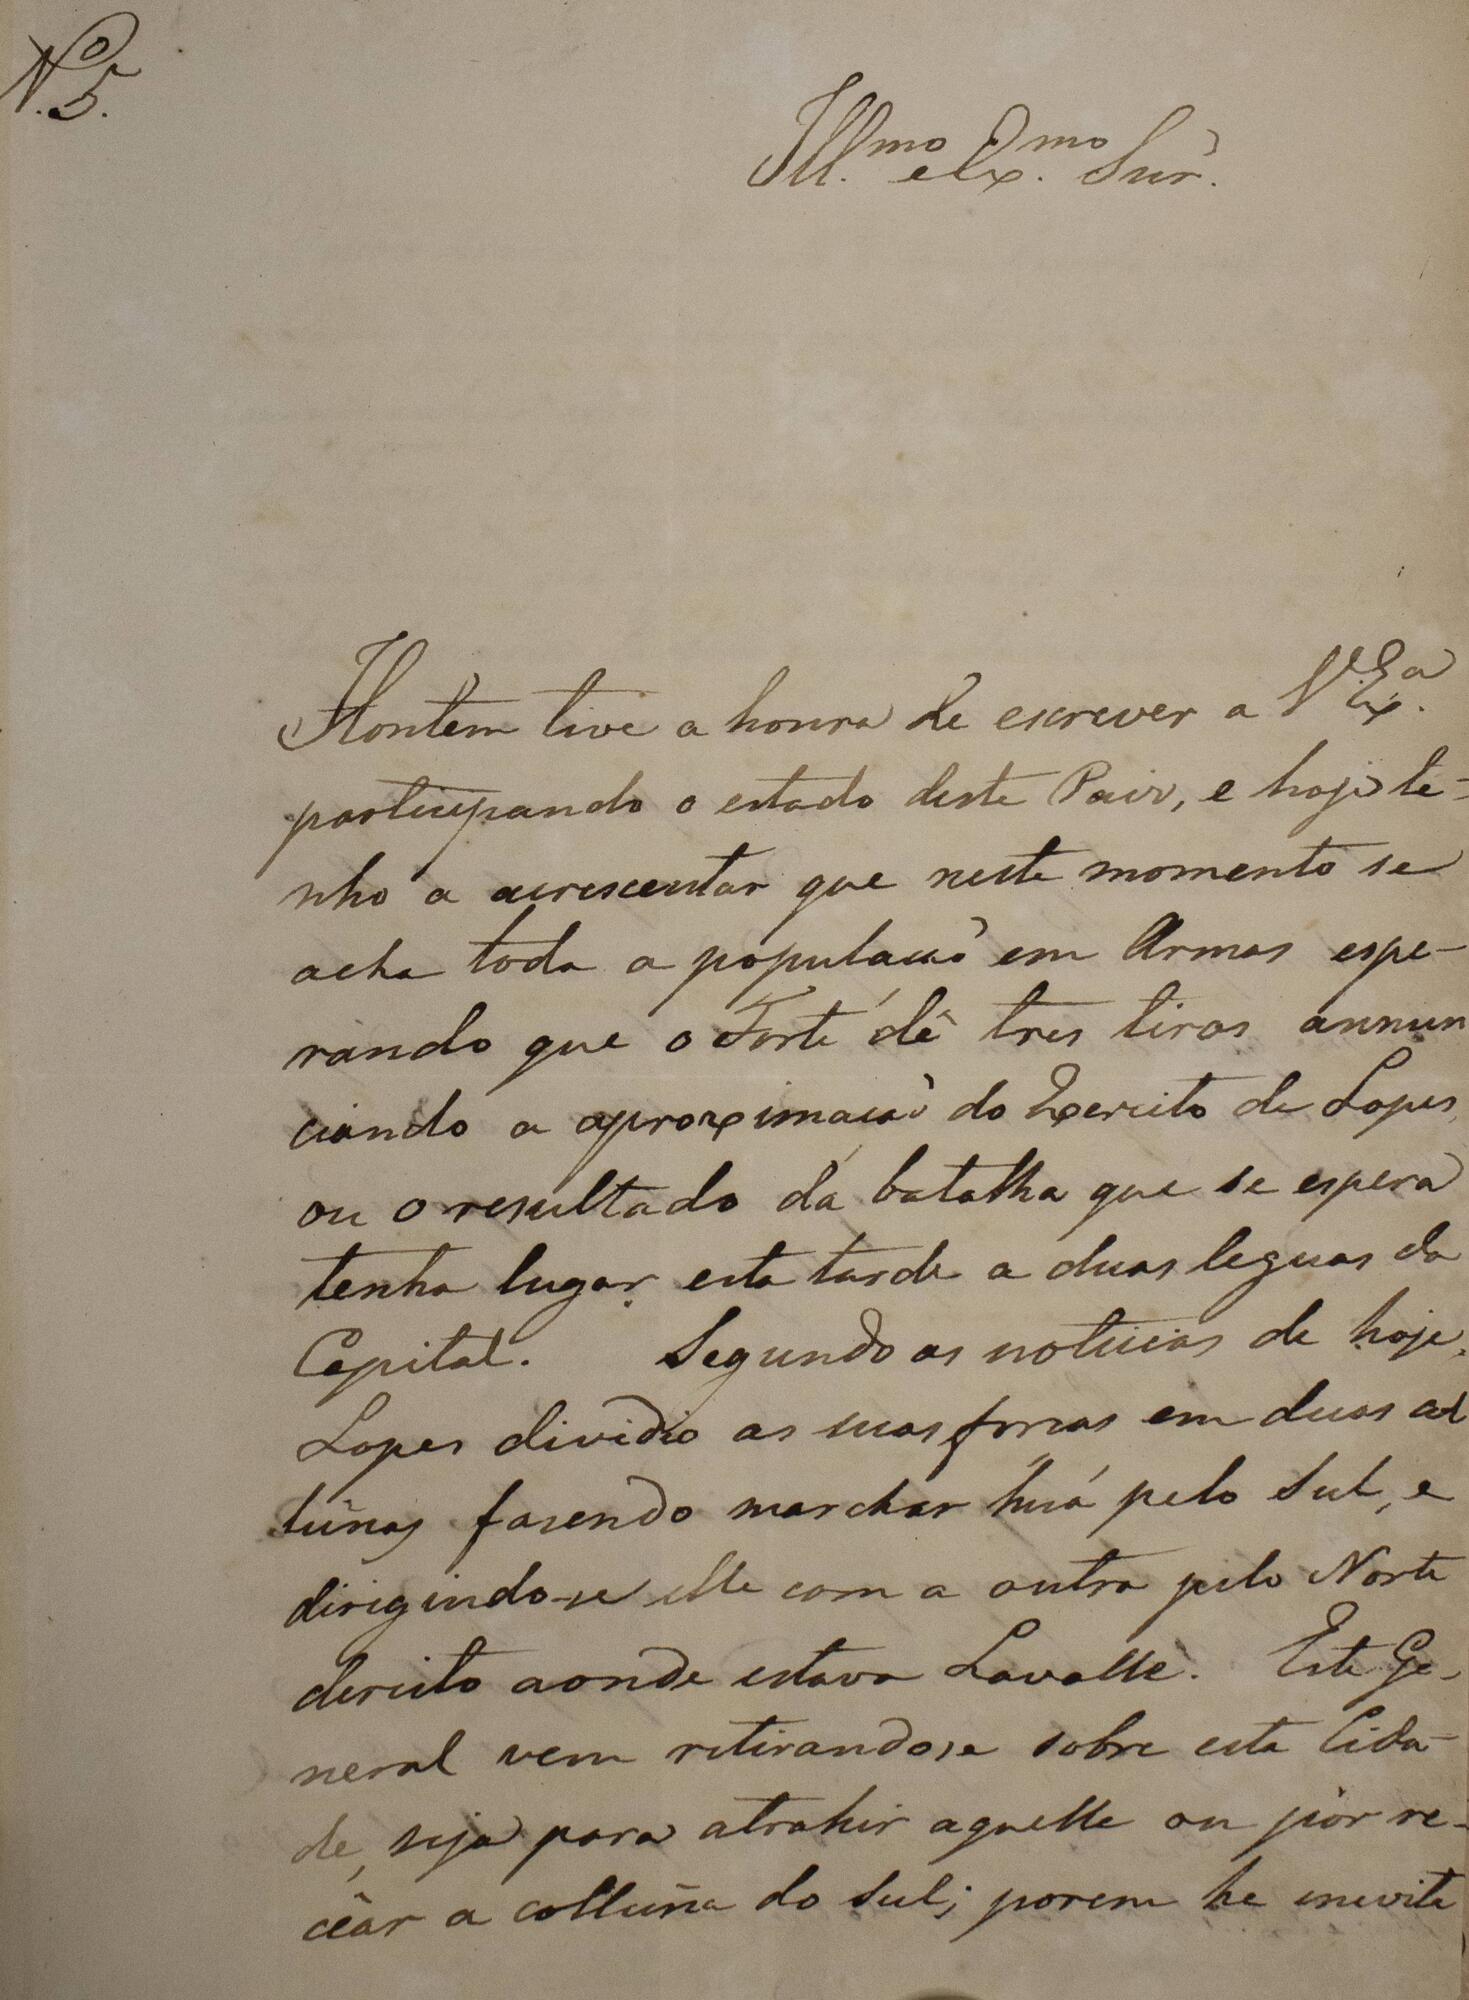 Nº 5.
Ill.mo e Ex.mo Snr.
Hontem tive a honra de escrever a V. Ex.a
participando o estado deste Paiz, e hoje te-
nho a acrescentar que neste momento se
acha toda a populacaõ em Armas espe-
rando que o Forte dê tres tiros annun
ciando a aproximacaõ do Exercito de Lopes,
ou o resultado da batalha que se espera
tenha lugar esta tarde a duas leguas da
Capital. Segundo as noticias de hoje,
Lopes dividio as suas forças em duas col
lũnas fasendo marchar huã pelo Sul, e
dirigindo-se elle com a outra pelo Norte
dereito aonde estava Lavalle. Este Ge-
neral vem retirandose sobre esta Cida-
de, seja para atrahir aquelle ou por re-
cear a collũna do Sul; porem he inevita